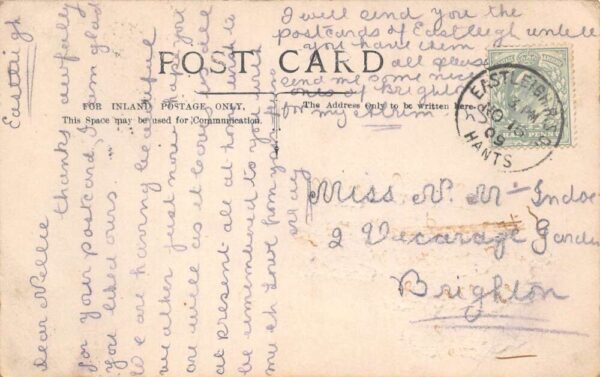 POST CARD
FOR INLAND POSTAGE ONLY.
This Space may be used for Communication.
The Address Only to be written here.
Eastleigh
Dear Nellie
thanks awfully
for your postcard, I am glad
you liked ours.
We are having beautiful
weather just now. I hope you
are well as it leaves us all
at present all at home wish to
be remembered to you with
much love from your
I will send you the
postcards of Eastleigh unless
you have them
all please
send me some nice
ones of Brighton
for my
EASTLEIGH R.S.O
3 PM
09
HANTS
HALFPENNY
Miss N. Mc
2 Vicarage Garden
Brighton